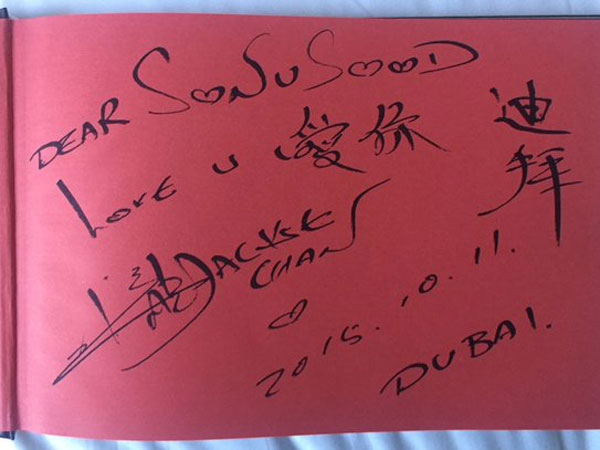 DEAR SONU SOOD
Love u 愛你
迪拜
成龍 JACKIE CHAN
2015.10.11.
DUBAI.